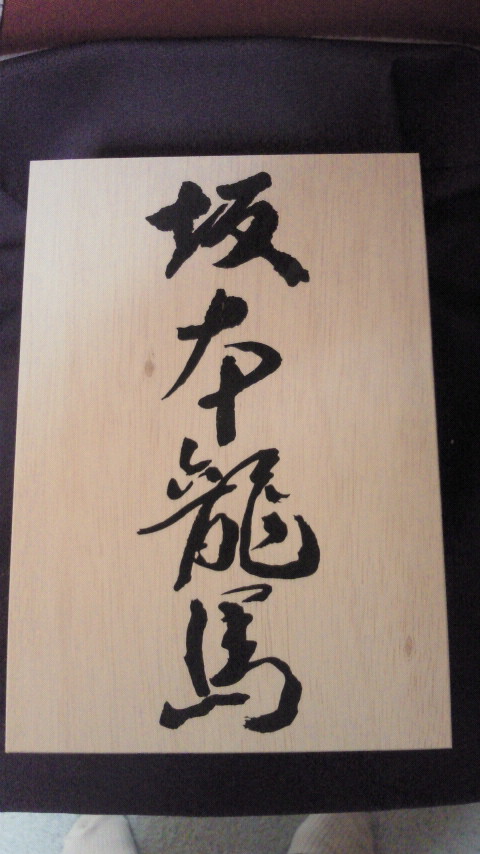 坂本龍馬